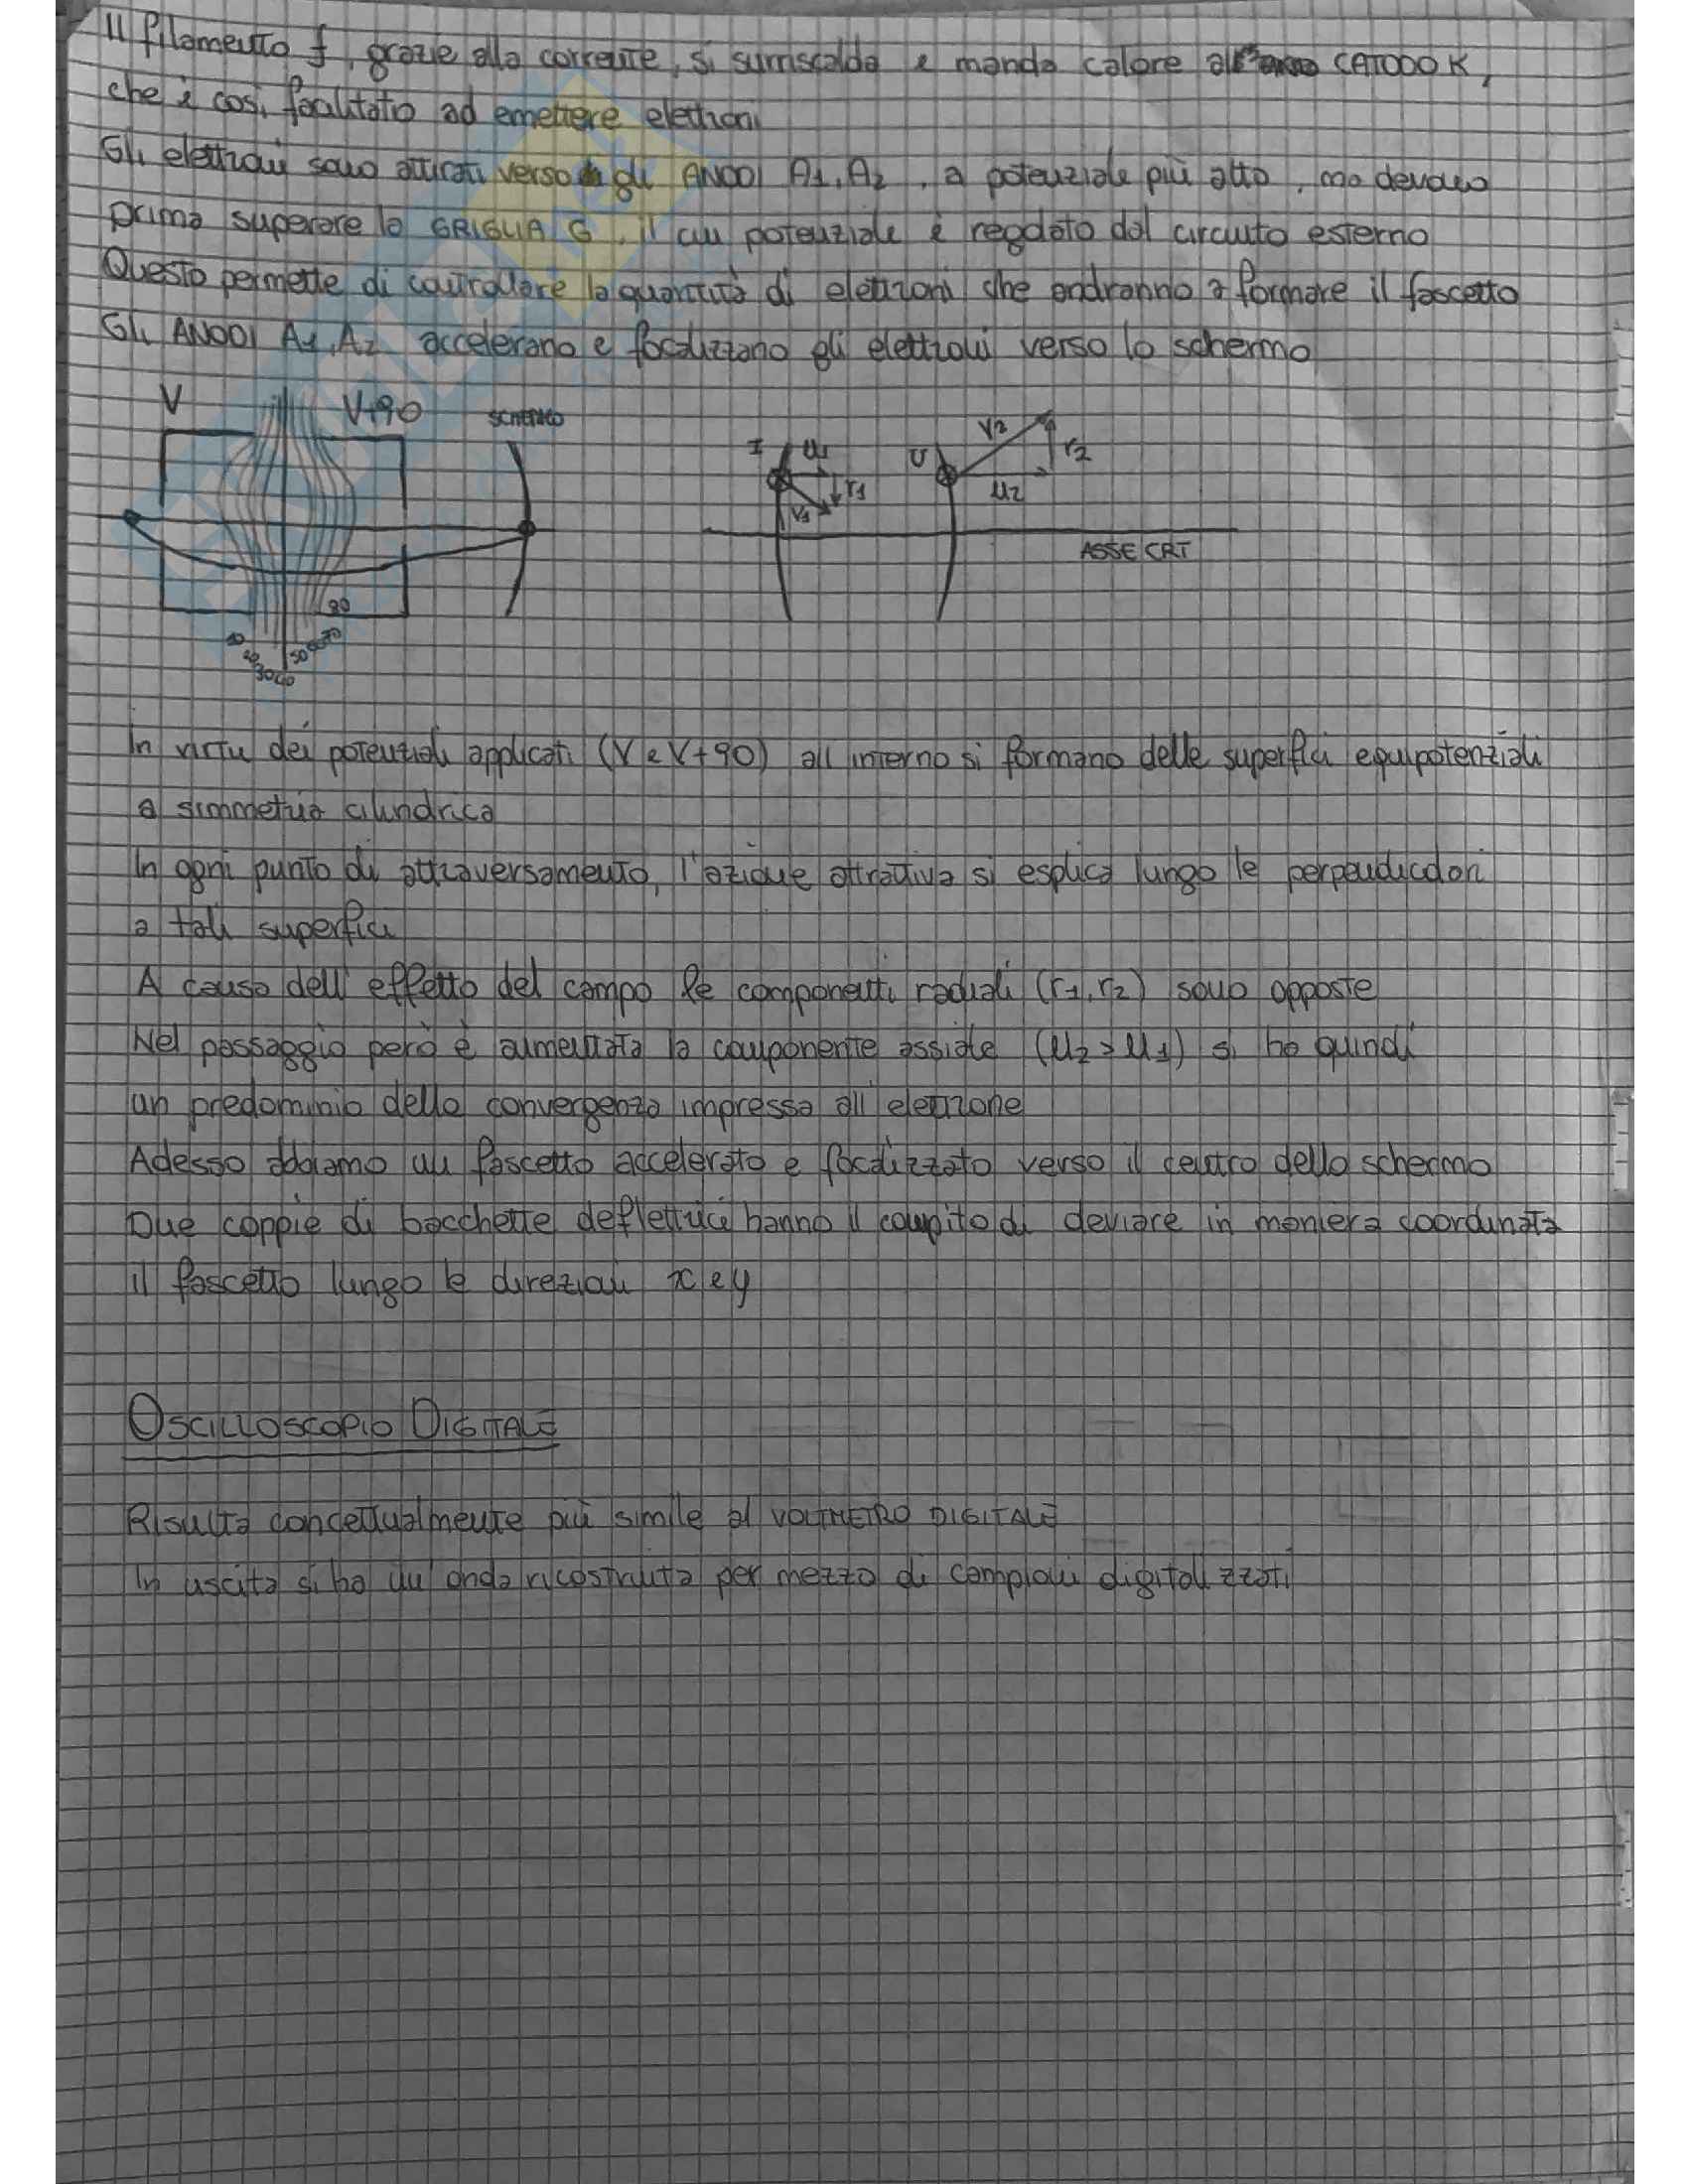 Il filamento f, grazie alla corrente, si surriscalda e manda calore al CATODO K,
che è così facilitato ad emettere elettroni
Gli elettroni sono attirati verso gli ANODI A1, A2, a potenziale più alto, ma devono
prima superare la GRIGLIA G, il cui potenziale è regolato dal circuito esterno
Questo permette di controllare la quantità di elettroni che andranno a formare il fascetto
Gli ANODI A1, A2 accelerano e focalizzano gli elettroni verso lo schermo
V V+90 SCHERMO
I u1 r1 v1 U v2 r2 u2
ASSE CRT
80
10 20 30 40 50 60 70
In virtu dei potenziali applicati (V e V+90) all'interno si formano delle superfici equipotenziali
a simmetria cilindrica
In ogni punto di attraversamento, l'azione attrattiva si esplica lungo le perpendicolari
a tali superfici
A causa dell'effetto del campo le componenti radiali (r1, r2) sono opposte
Nel passaggio però è aumentata la componente assiale (u2 > u1) si ha quindi
un predominio della convergenza impressa all'elettrone
Adesso abbiamo un fascetto accelerato e focalizzato verso il centro dello schermo
Due coppie di bacchette deflettrici hanno il compito di deviare in maniera coordinata
il fascetto lungo le direzioni x e y
OSCILLOSCOPIO DIGITALE
Risulta concettualmente più simile al VOLTMETRO DIGITALE
In uscita si ha un'onda ricostruita per mezzo di campioni digitalizzati